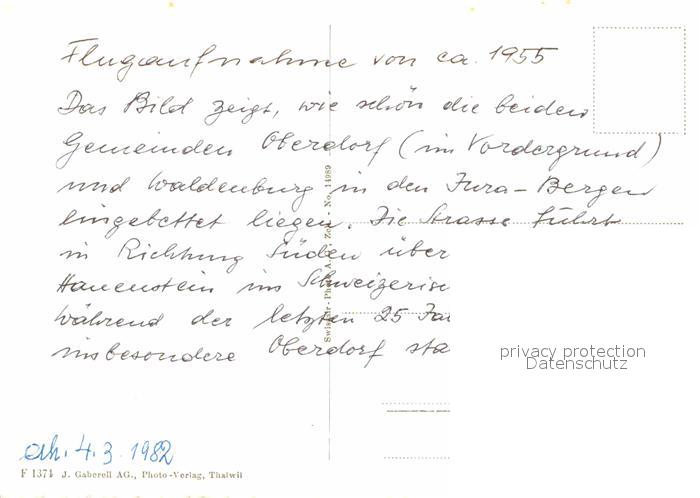 Flugaufnahme von ca. 1955
Das Bild zeigt, wie schön die beiden
Gemeinden Oberdorf (im Vordergrund)
und Waldenburg in den Jura-Bergen
eingebettet liegen. Die Strasse führt
in Richtung Süden über
Hauenstein ins Schweizeris
Während der letzten 25 Ja
insbesondere Oberdorf sta
Swissair-Photo A.G. Zch. - No. 14989
privacy protection
Datenschutz
4.3.1982
F 1374 J. Gaberell AG., Photo-Verlag, Thalwil